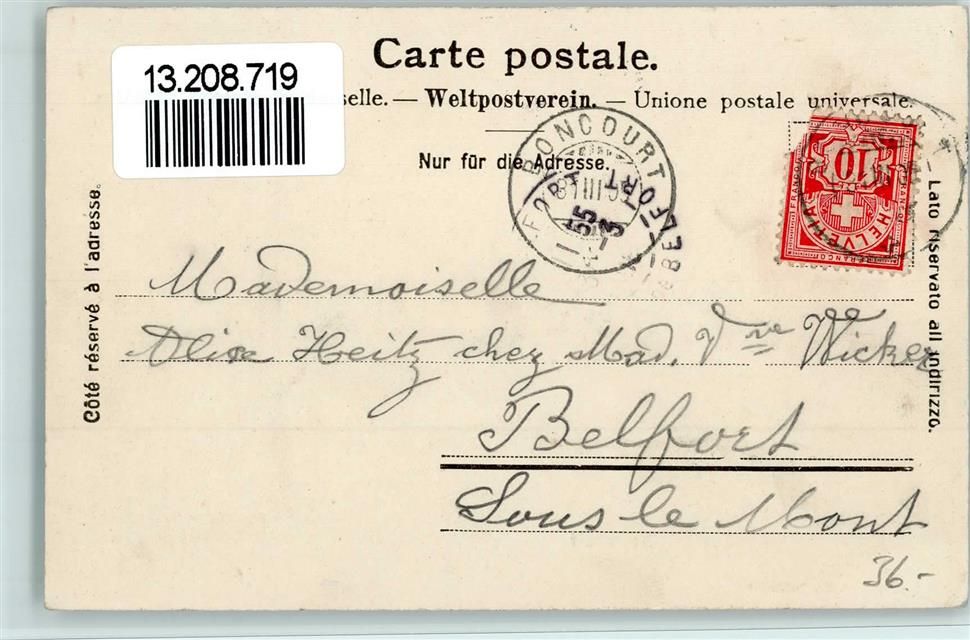 13.208.719
Carte postale.
selle. — Weltpostverein. — Unione postale universale.
Nur für die Adresse.
Côté réservé à l'adresse.
Lato riservato all indirizzo.
BONCOURT
III
BELFORT
10
FRANCO
HELVETIA
Mademoiselle
Alice Heitz chez Mad. Vve Wicker
Belfort
Sous le Mont
36.-